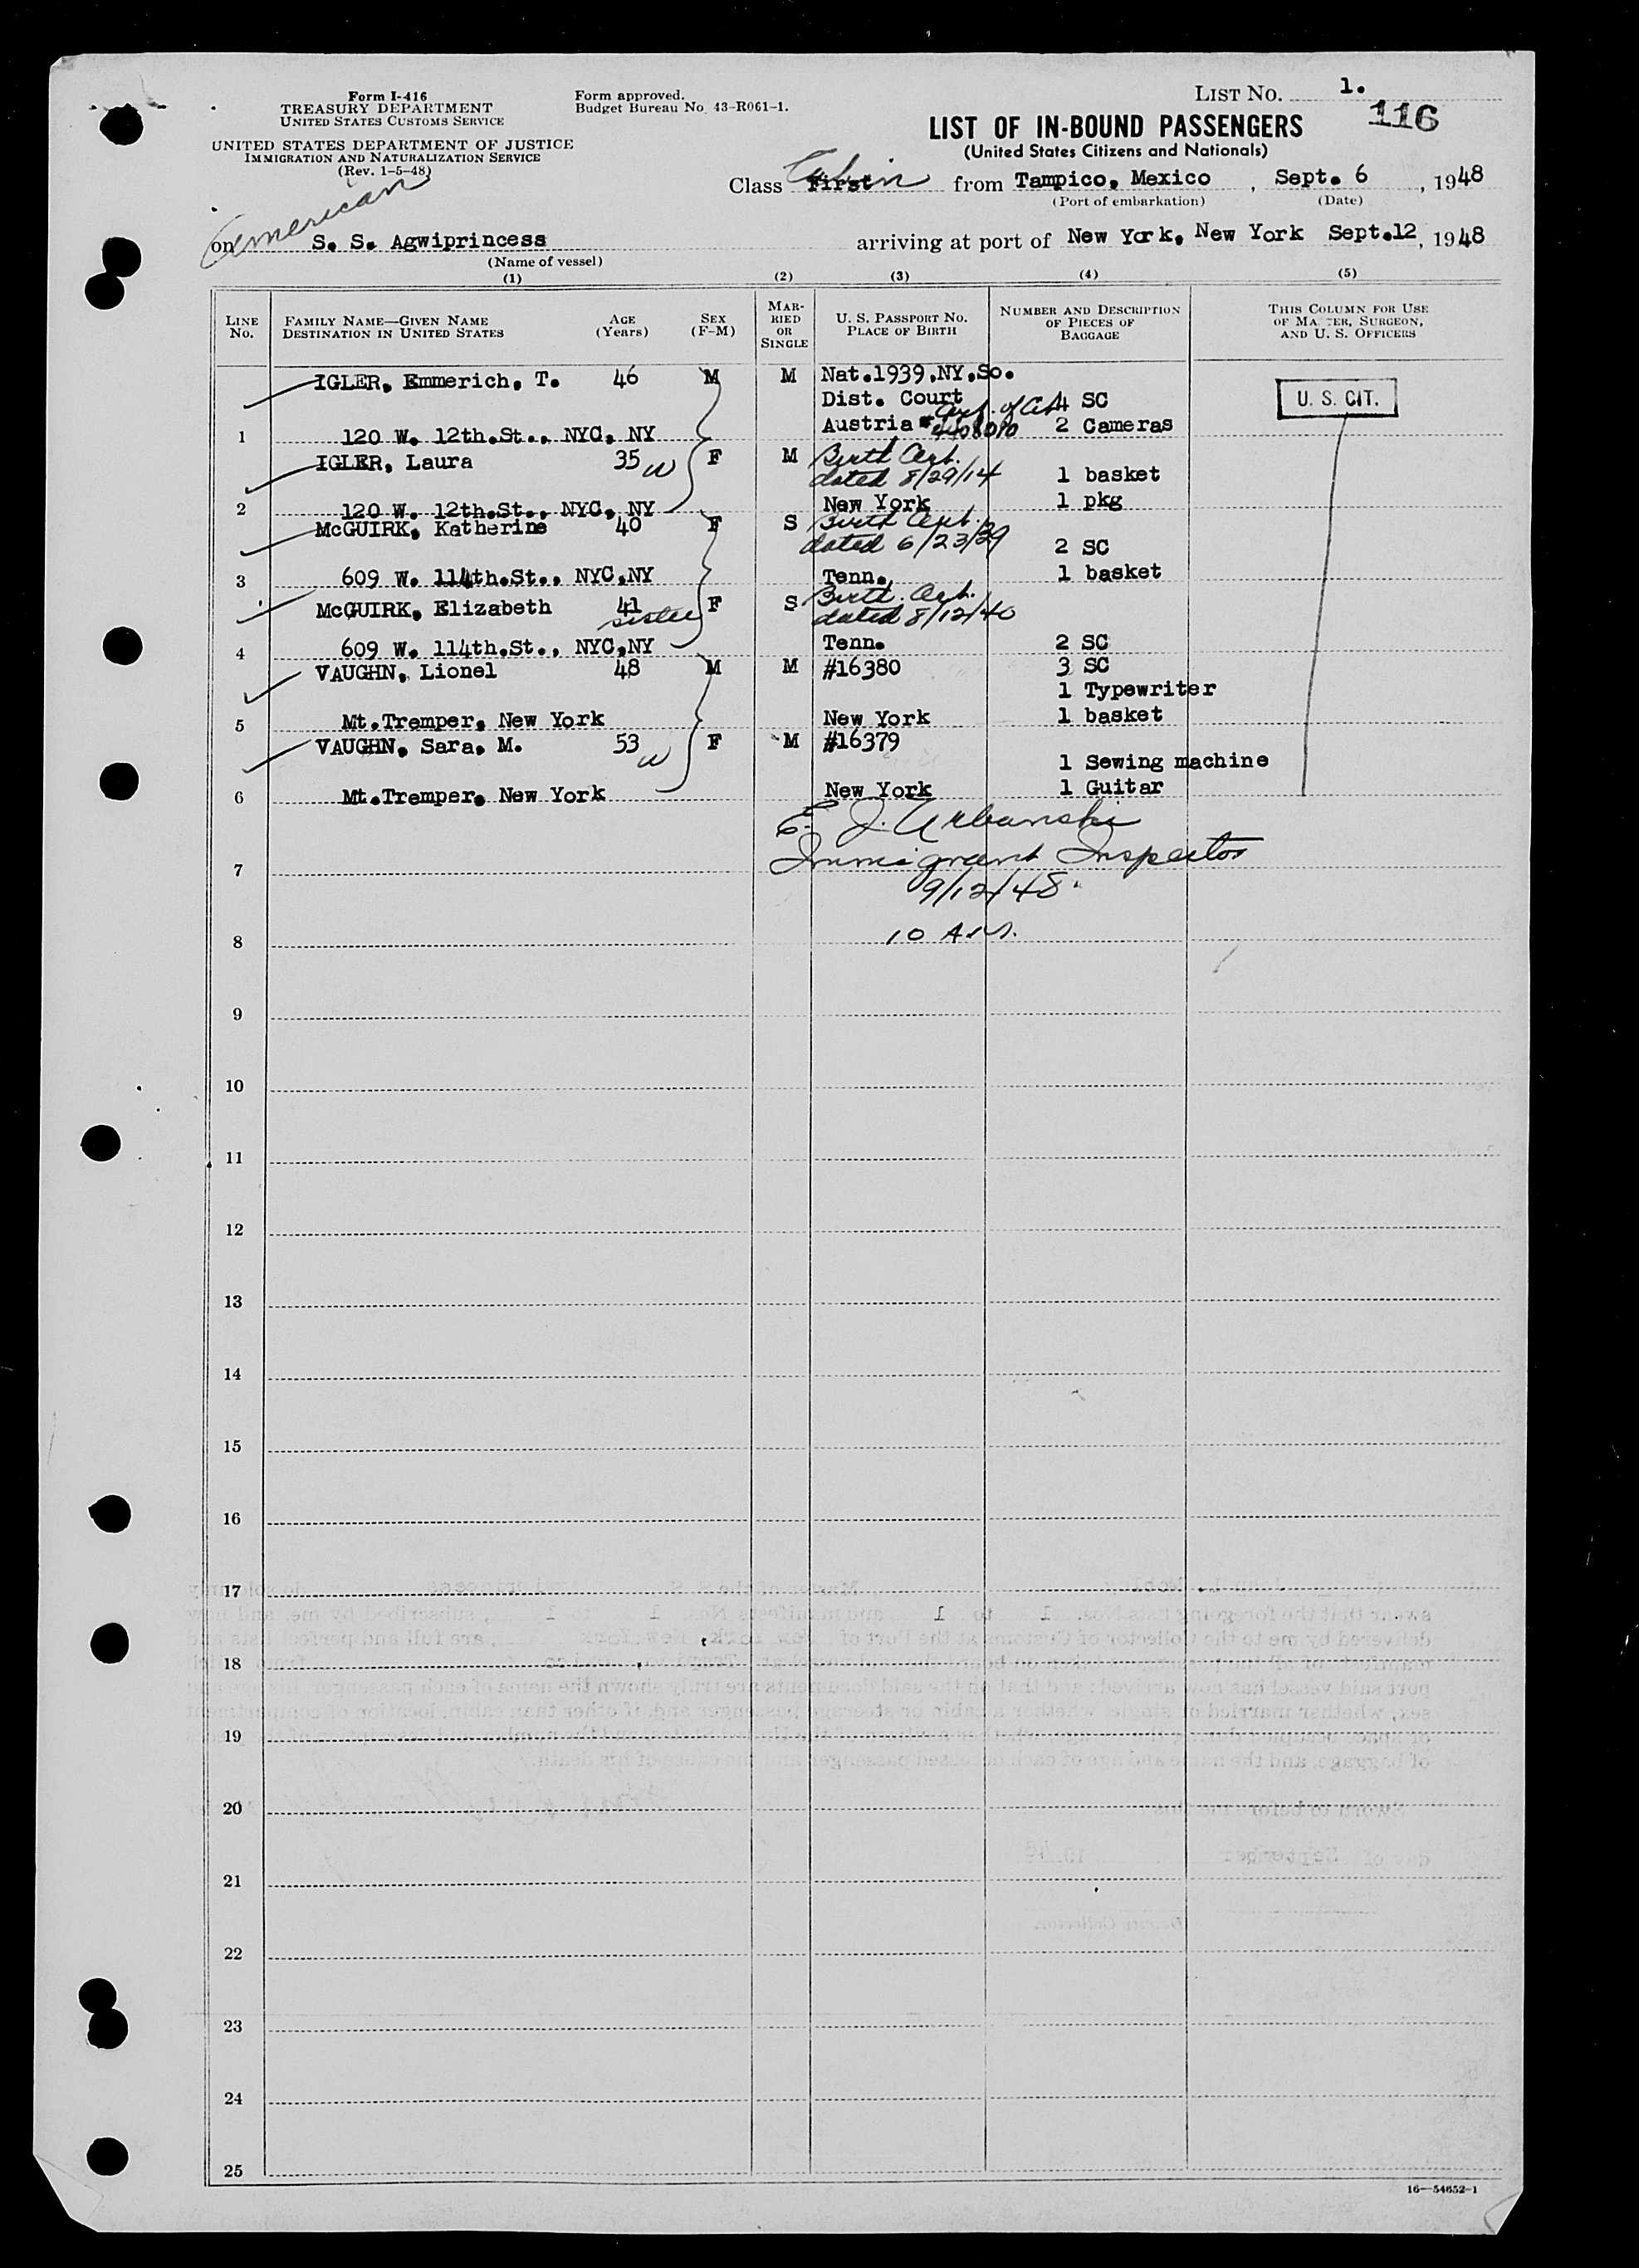 Form I-416
TREASURY DEPARTMENT
UNITED STATES CUSTOMS SERVICE
UNITED STATES DEPARTMENT OF JUSTICE
IMMIGRATION AND NATURALIZATION SERVICE
(Rev. 1-5-48)
Form approved.
Budget Bureau No. 43-R061-1.
LIST NO. 1.
116
LIST OF IN-BOUND PASSENGERS
(United States Citizens and Nationals)
Class First Cabin from Tampico, Mexico, Sept. 6, 1948
(Port of embarkation) (Date)
American
on S. S. Agwiprincess arriving at port of New York, New York Sept.12, 1948
(Name of vessel)
(1) (2) (3) (4) (5)
LINE No. FAMILY NAME—GIVEN NAME DESTINATION IN UNITED STATES AGE (Years) SEX (F-M) MARRIED OR SINGLE U. S. PASSPORT NO. PLACE OF BIRTH NUMBER AND DESCRIPTION OF PIECES OF BAGGAGE THIS COLUMN FOR USE OF MASTER, SURGEON, AND U. S. OFFICERS
IGLER, Emmerich, T. 46 M M Nat.1939,NY,So.
Dist. Court 4 SC U. S. CIT.
1 120 W. 12th.St., NYC, NY Austria 2 Cameras
IGLER, Laura 35 w F M Birth Cert.
dated 8/29/14 1 basket
2 120 W. 12th.St., NYC, NY New York 1 pkg
McGUIRK, Katherine 40 F S Birth Cert.
dated 6/23/39 2 SC
3 609 W. 114th.St., NYC,NY Tenn. 1 basket
McGUIRK, Elizabeth 41 F S Birth Cert.
sister dated 8/12/40
4 609 W. 114th.St., NYC,NY Tenn. 2 SC
VAUGHN, Lionel 48 M M #16380 3 SC
1 Typewriter
5 Mt.Tremper, New York New York 1 basket
VAUGHN, Sara, M. 53 w F M #16379
1 Sewing machine
6 Mt.Tremper, New York New York 1 Guitar
E. J. Urbanski
7 Immigrant Inspector
9/12/48.
8 10 A.M.
9
10
11
12
13
14
15
16
17
18
19
20
21
22
23
24
25
16—54652-1